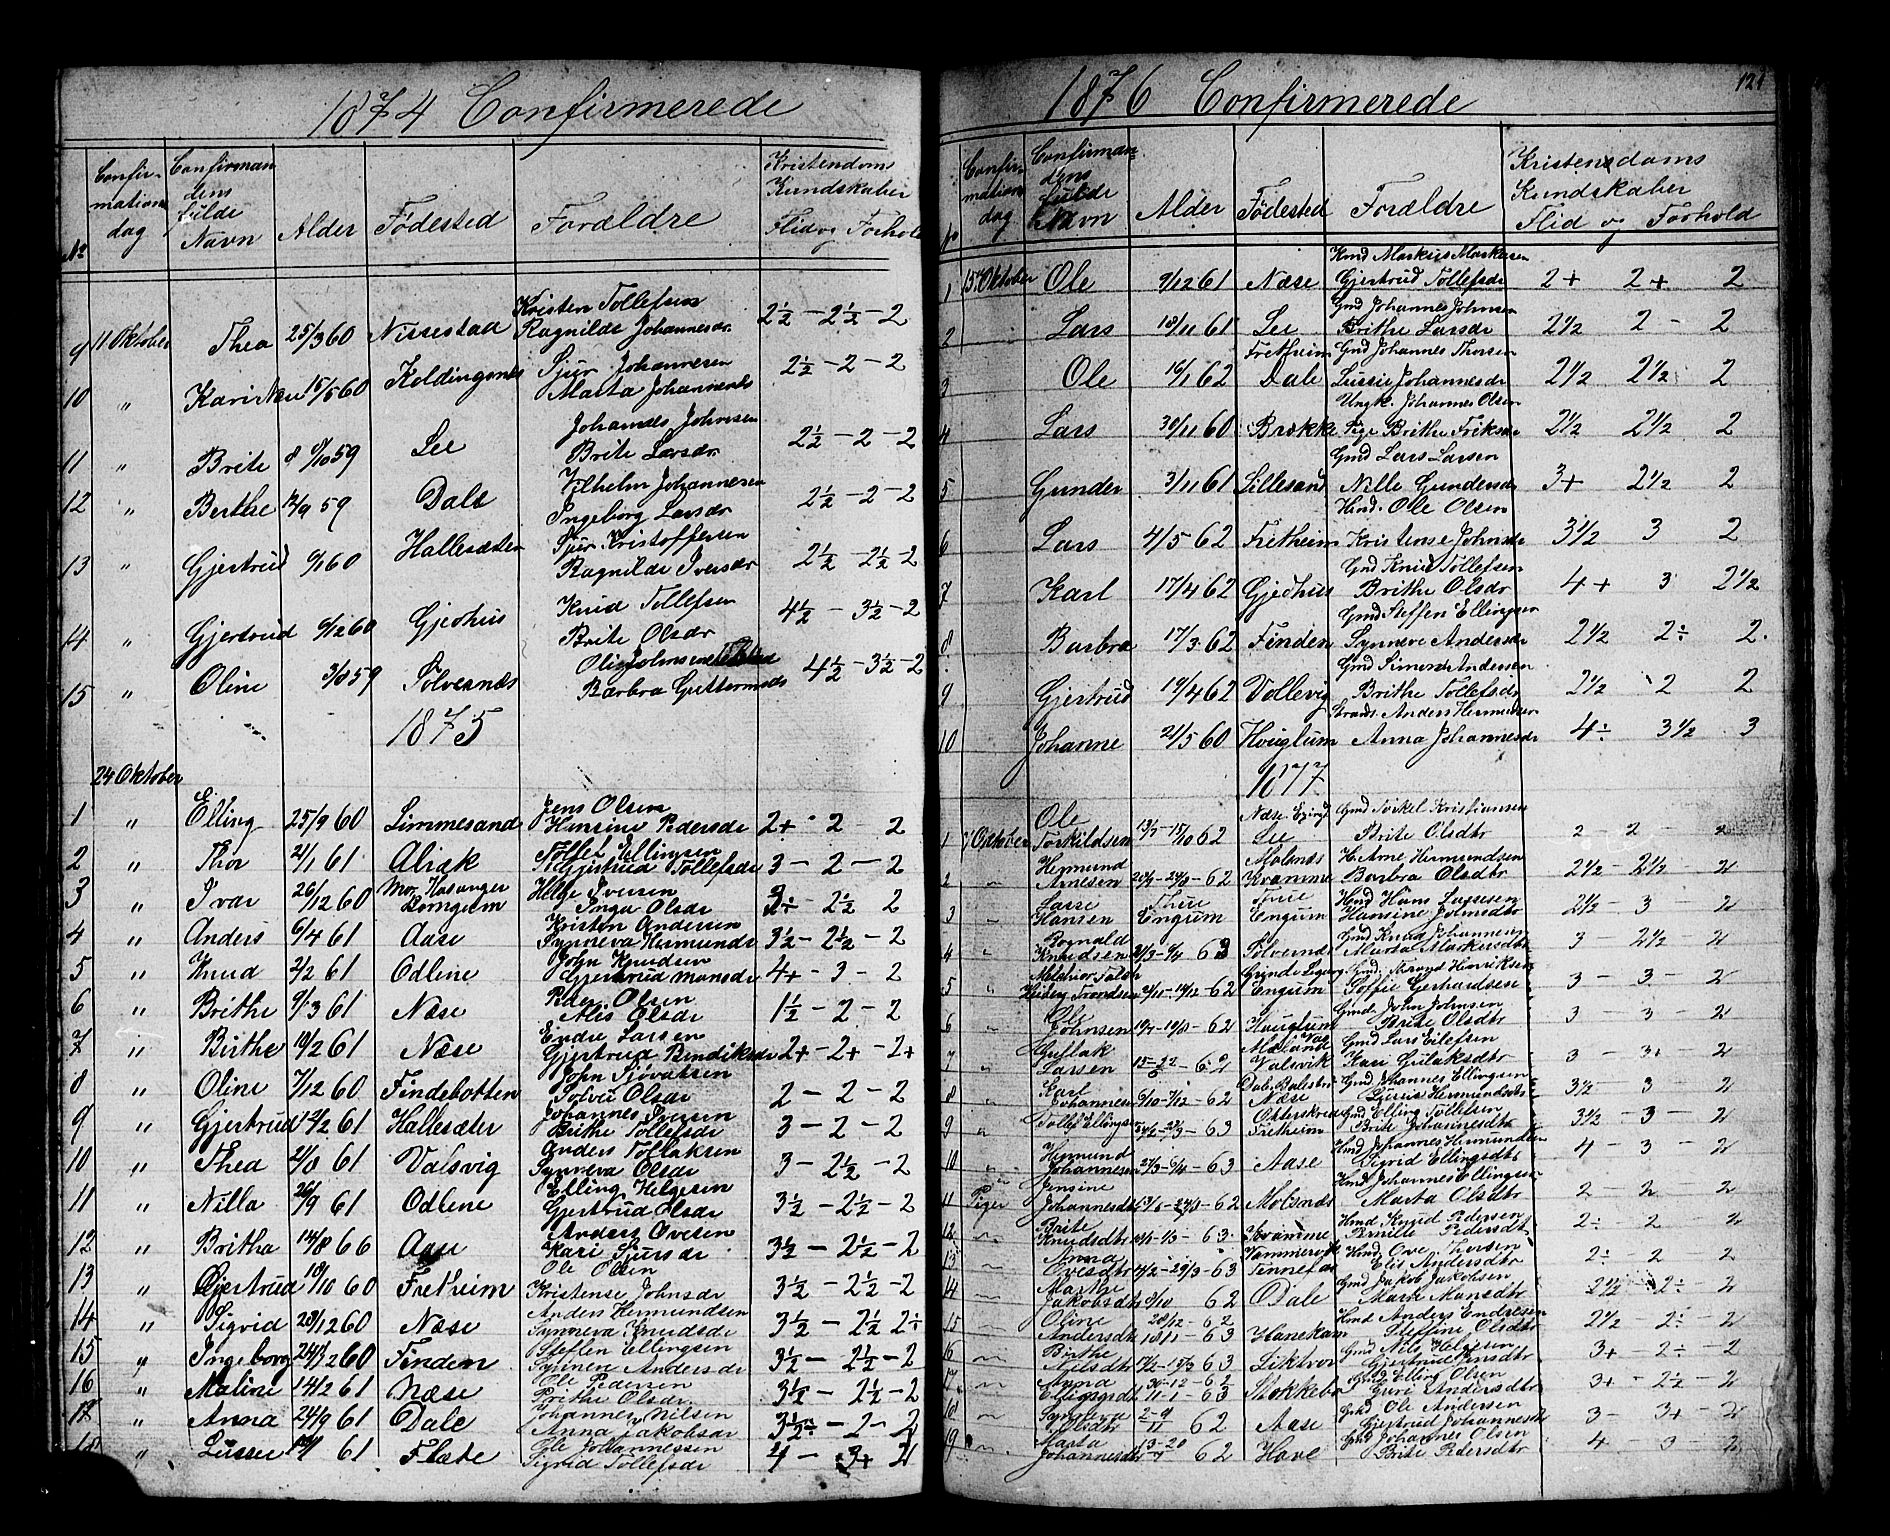 1874 Confirmerede
No Confirmationsdag Confirmandens fulde Navn Alder Fødested Forældre Kristendoms Kundskaber Flid og Forhold
9 11 Oktober Thea 25/3 60 Nissestad Kristen Tollefsen Ragnilde Johannesdr 2½ - 2½ - 2
10 " Kari 15/5 60 Sjur Johannesen Marta Johannesdr 2½ - 2 - 2
11 " Brite 8/10 59 Lee Johannes Johnsen Brite Larsdr 2½ - 2 - 2
12 " Berthe 12/9 59 Dale Vilhelm Johannesen Ingeborg Larsdr 2½ - 2 - 2
13 " Gjertrud 9/1 60 Hallesæter Sjur Kristoffersen Ragnilde Iversdr 2½ - 2½ - 2
14 " Gjertrud 9/12 60 Gjerhus Knud Tollefsen Brite Olsdr 4½ - 3½ - 2
15 " Oline 3/8 59 Solvesnæs Barbra Guttormsdr 4½ - 3½ - 2
1875
24 Oktober
1 " Elling 25/9 60 Simmesand Jens Olsen Hansine Pedersdr 2+ 2 2
2 " Thor 21/1 61 Tollef Ellingsen Gjertrud Tollefsdr 3 - 2 - 2
3 " Ivar 26/12 60 Helge Iversen Inga Olsdr 2½ 2
4 " Anders 6/4 61 Aase Kristen Andersen Synneva Hermundsdr 3½ - 2½ - 2
5 " Knud 2/2 61 Odlene John Knudsen Gjertrud Monsdr 4+ - 3 - 2
6 " Brithe 9/3 61 Næse Peder Olsen Alis Olsdr 1½ - 2 - 2
7 " Birthe 19/2 61 Næse Endre Larsen Gjertrud Bendiksdr 2+ - 2+ - 2+
8 " Oline 7/12 60 Findebotten John Sjovatsen Solvei Olsdr 2 - 2 - 2
9 " Gjertrud 12/2 61 Hallesæter Johannes Iversen Brithe Tollefsdr 3 - 2 - 2
10 " Thea 21/8 61 Valsvig Anders Tollaksen Synneva Olsdr 3 - 2½ - 2
11 " Nilla 26/9 61 Odlene Elling Helgesen Gjertrud Olsdr 3½ - 2½ - 2
12 " Britha 14/8 66 Aase Anders Ovesen Kari Sjursdr 3½ - 2½ - 2
13 " Gjertrud 18/10 60 Fretheim Ole Olsen Kristense Johnsdr 3½ - 2½ - 2
14 " Sigrid 28/12 60 Næse Anders Hermundsen Synneva Knudsdr 3½ - 2½ 2÷
15 " Ingeborg 60 Finden Steffen Ellingsen Synneve Andersdr 3½ - 2½ - 2
16 " Maline 14/2 61 Næse Ole Pedersen Brithe Olsdr 3½ - 2½ - 2
17 " Anna 24/9 61 Dale Johannes Nilsen Anna Jakobsdr 3½ - 2 - 2
18 " Lussie 61 Flæte Ole Johannessen Sigrid Tollefsdr 4 - 3+ 2
1876 Confirmerede
121
No Confirmationsdag Confirmandens fulde Navn Alder Fødested Forældre Kristensdoms Kundskaber Flid og Forhold
1 15 Oktober Ole 9/12 61 Næse Hmd Markus Markusen Gjertrud Tollefsdr 2+ 2+ 2
2 Lars 18/11 61 Lee Gmd Johannes Johnsen Brithe Larsdr 2½ 2 - 2
3 Ole 16/1 62 Fretheim Dale Gmd Johannes Thorsen Lussie Johannesdr 2½ 2½ 2
4 Lars 30/11 60 Brække Ungk. Johannes Olsen Pige Brithe Eriksdr 2½ 2½ 2
5 Gunder 3/11 61 Lillesand Gmd Lars Larsen Nille Gundersdr 3+ 2½ 2
6 Lars 4/5 62 Fretheim Hmd. Ole Olsen Kristense Johnsdr 3½ 3 2
7 Karl 17/4 62 Gjedhus Gmd Knud Tollefsen Brithe Olsdr 4+ 3 2½
8 Barbra 17/3 62 Finden Gmd Steffen Ellingsen Synneve Andersdr 2½ 2÷ 2
9 Gjertrud 19/4 62 Vollevig Gmd Simon Andersen Brithe Tollefsdr 2½ 2 2
10 Johanne 21/5 60 Houglum Anders Hermundsen Anna Johannesdr 4÷ 3½ 3
1877
1 7 Oktober Ole Torkildsen 13/7 - 15/10 62 Næse Lee Gmd Torkel Kristiansen Brite Olsdtr 2 - 2 - 2
2 " Hermund Arnesen 62 Molsnæs Kvamme H. Arne Hermundsen Barbra Olsdtr 2½ - 2½ - 2
3 " Lasse Hansen Thue Engum Thue Engum Hmd Hans Lassesen Hansine Johnsdtr 2½ - 3 - 2
4 " Rognald Knudsen 63 Solvesnæs Gmd Knud Johannesen Marta Markusdtr 3 - 2½ - 2
5 " Melchior Falch Heiberg Trondsen 62 Engum Gmd. Trond Henriksen Soffie Gerhardsen 3 - 3 - 2
6 " Ole Johnsen 62 Houglum Gmd. John Johnsen Brite Olsdtr 3 - 3 - 2
7 " Gutlak Larsen 62 Valsvik Gmd Lars Eilefsen Kari Gulaksdtr 3 - 3+ - 2
8 " Karl Johannesen 9/10 - 7/12 - 62 Næse Gmd Johannes Ellingsen Lussie Hermundsdtr 3½ - 3 - 2
9 " Tollef Ellingsen 63 Fretheim Gmd Elling Tollefsen Brite Johannesdtr 3½ - 3 - 2
10 " Hermund Johannesen 63 Aase Hmd Johannes Hermundsen Sigrid Ellingsdtr 4 - 3 - 2
11 Piger Jensine Johannesdtr 62 Molsnæs Hmd Johannes Ellingsen Marta Olsdtr 2 - 2 2
12 " Brite Knudsdtr 63 Kvamme Hmd Knud Pedersen Pernille Pedersdtr 2÷ - 2 2
13 " Anna Ovesdtr 63 Hmd Ove Thorsen Elis Andersdtr 2÷ - 2 2
14 " Marthe Jakobsdtr 9/10 62 Dale Gmd Jakob Jakobsen Marte Monsdtr 2½ 2÷ - 2
15 " Oline Andersdtr 28/12 - 62 18/11 - 63 Hanekam Hmd Anders Endresen Steffine Olsdtr 2½ - 2÷ - 2
16 " Birthe Nilsdtr 63 Liktvor Gmd Nils Helgesen Gjertrud Jensdtr 3+ - 2÷ - 2
17 " Anna Ellingsdtr 30-12 - 62 11-1 - 63 Stokkebø Gmd Elling Olsen Guri Andersdtr 3+ - 2½ - 2
18 " Synneva Olsdtr 62 Aase Gmd Ole Andersen Gjertrud Johannesdtr 3 - 3+ - 2
19 " Marta Johannesdtr 62 Hove Gmd Johannes Olsen Brite Pedersdtr 4 3 - 2